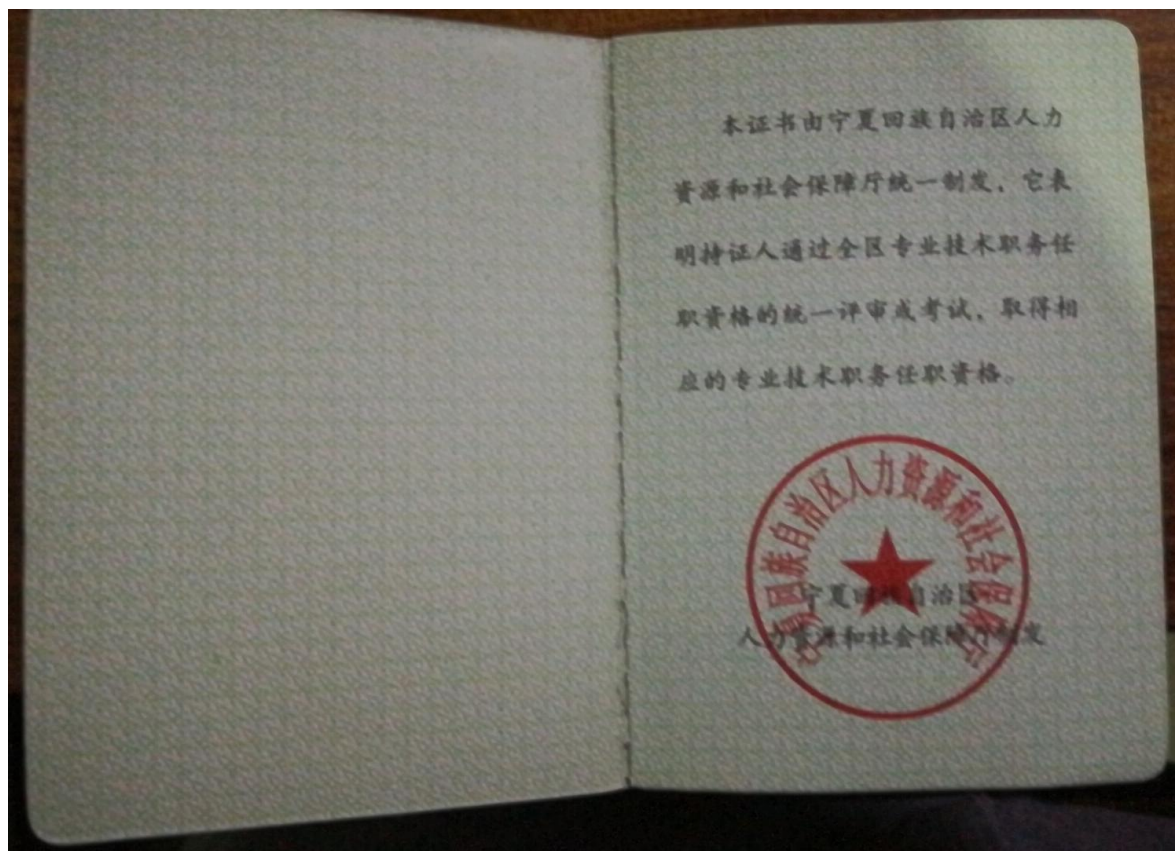 本证书由宁夏回族自治区人力
资源和社会保障厅统一制发，它表
明持证人通过全区专业技术职务任
职资格的统一评审或考试，取得相
应的专业技术职务任职资格。
宁夏回族自治区人力资源和社会保障厅
宁夏回族自治区
人力资源和社会保障厅制发